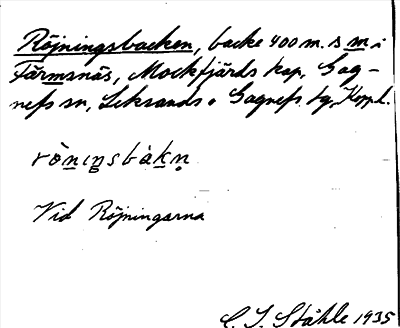 Röjningsbacken, backe 400 m. s m i
Färmsnäs, Mockfjärds kap, Gag-
nefs sn, Leksands o Gagnefs tg, Koppl.
ròniŋsbàkn̥
Vid Röjningarna
C. I. Ståhle 1935